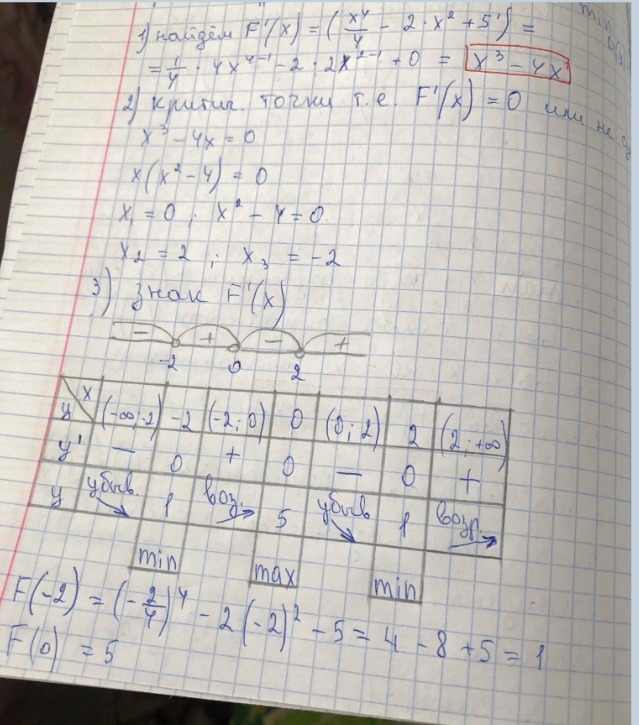 min
1) найдём F'(x) = (x⁴/4 - 2·x² + 5)' =
= 1/4 · 4x⁴⁻¹ - 2·2x²⁻¹ + 0 = x³ - 4x
2) критич. точки т.е. F'(x) = 0 или не
x³ - 4x = 0
x(x² - 4) = 0
x₁ = 0 ; x² - 4 = 0
x₂ = 2 ; x₃ = -2
3) знак F'(x)
- + - +
-2 0 2
y x (-∞;-2) -2 (-2;0) 0 (0;2) 2 (2;+∞)
y' - 0 + 0 - 0 +
y убыв. 1 воз. 5 убыв 1 возр.
min max min
F(-2) = (-2/4)⁴ - 2(-2)² - 5 = 4 - 8 + 5 = 1
F(0) = 5